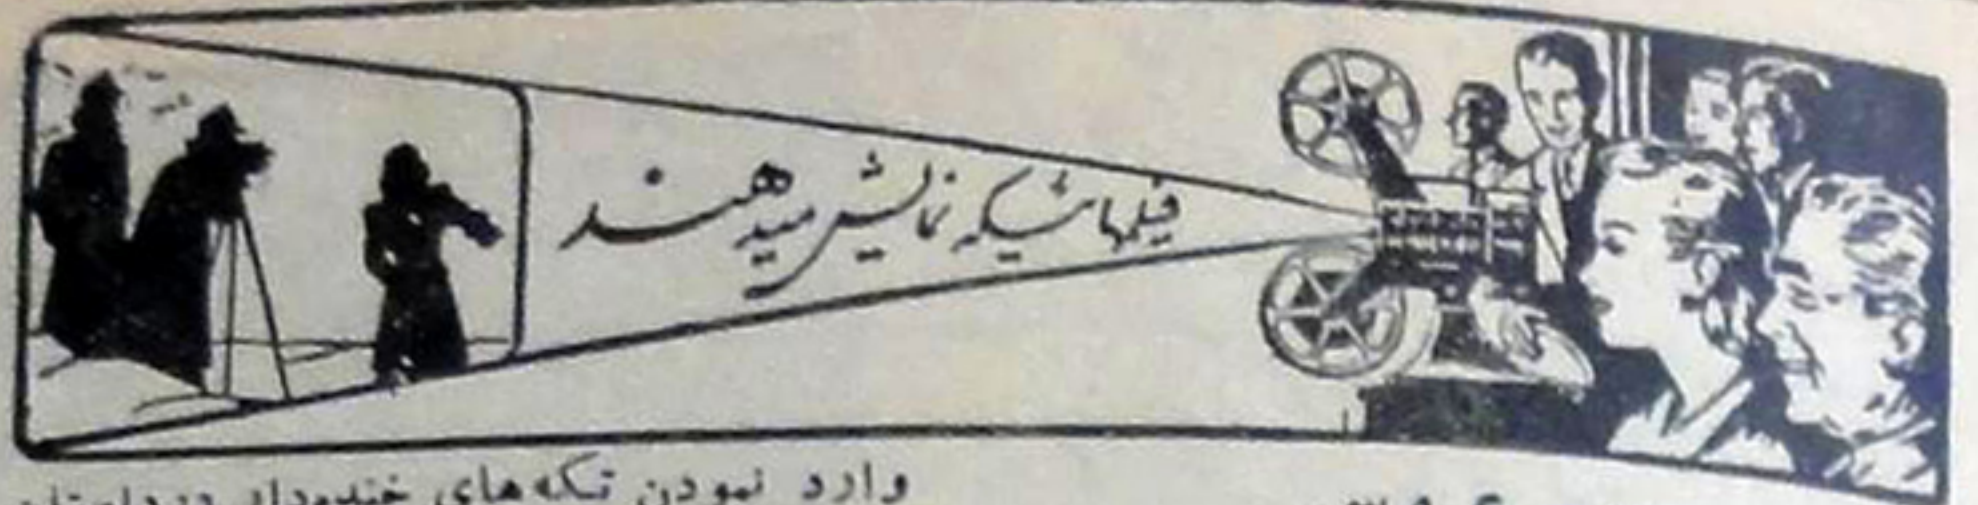 فیلمهائیکه نمایش میدهند
وارد نمودن تکه‌های خنده‌دار در داستان